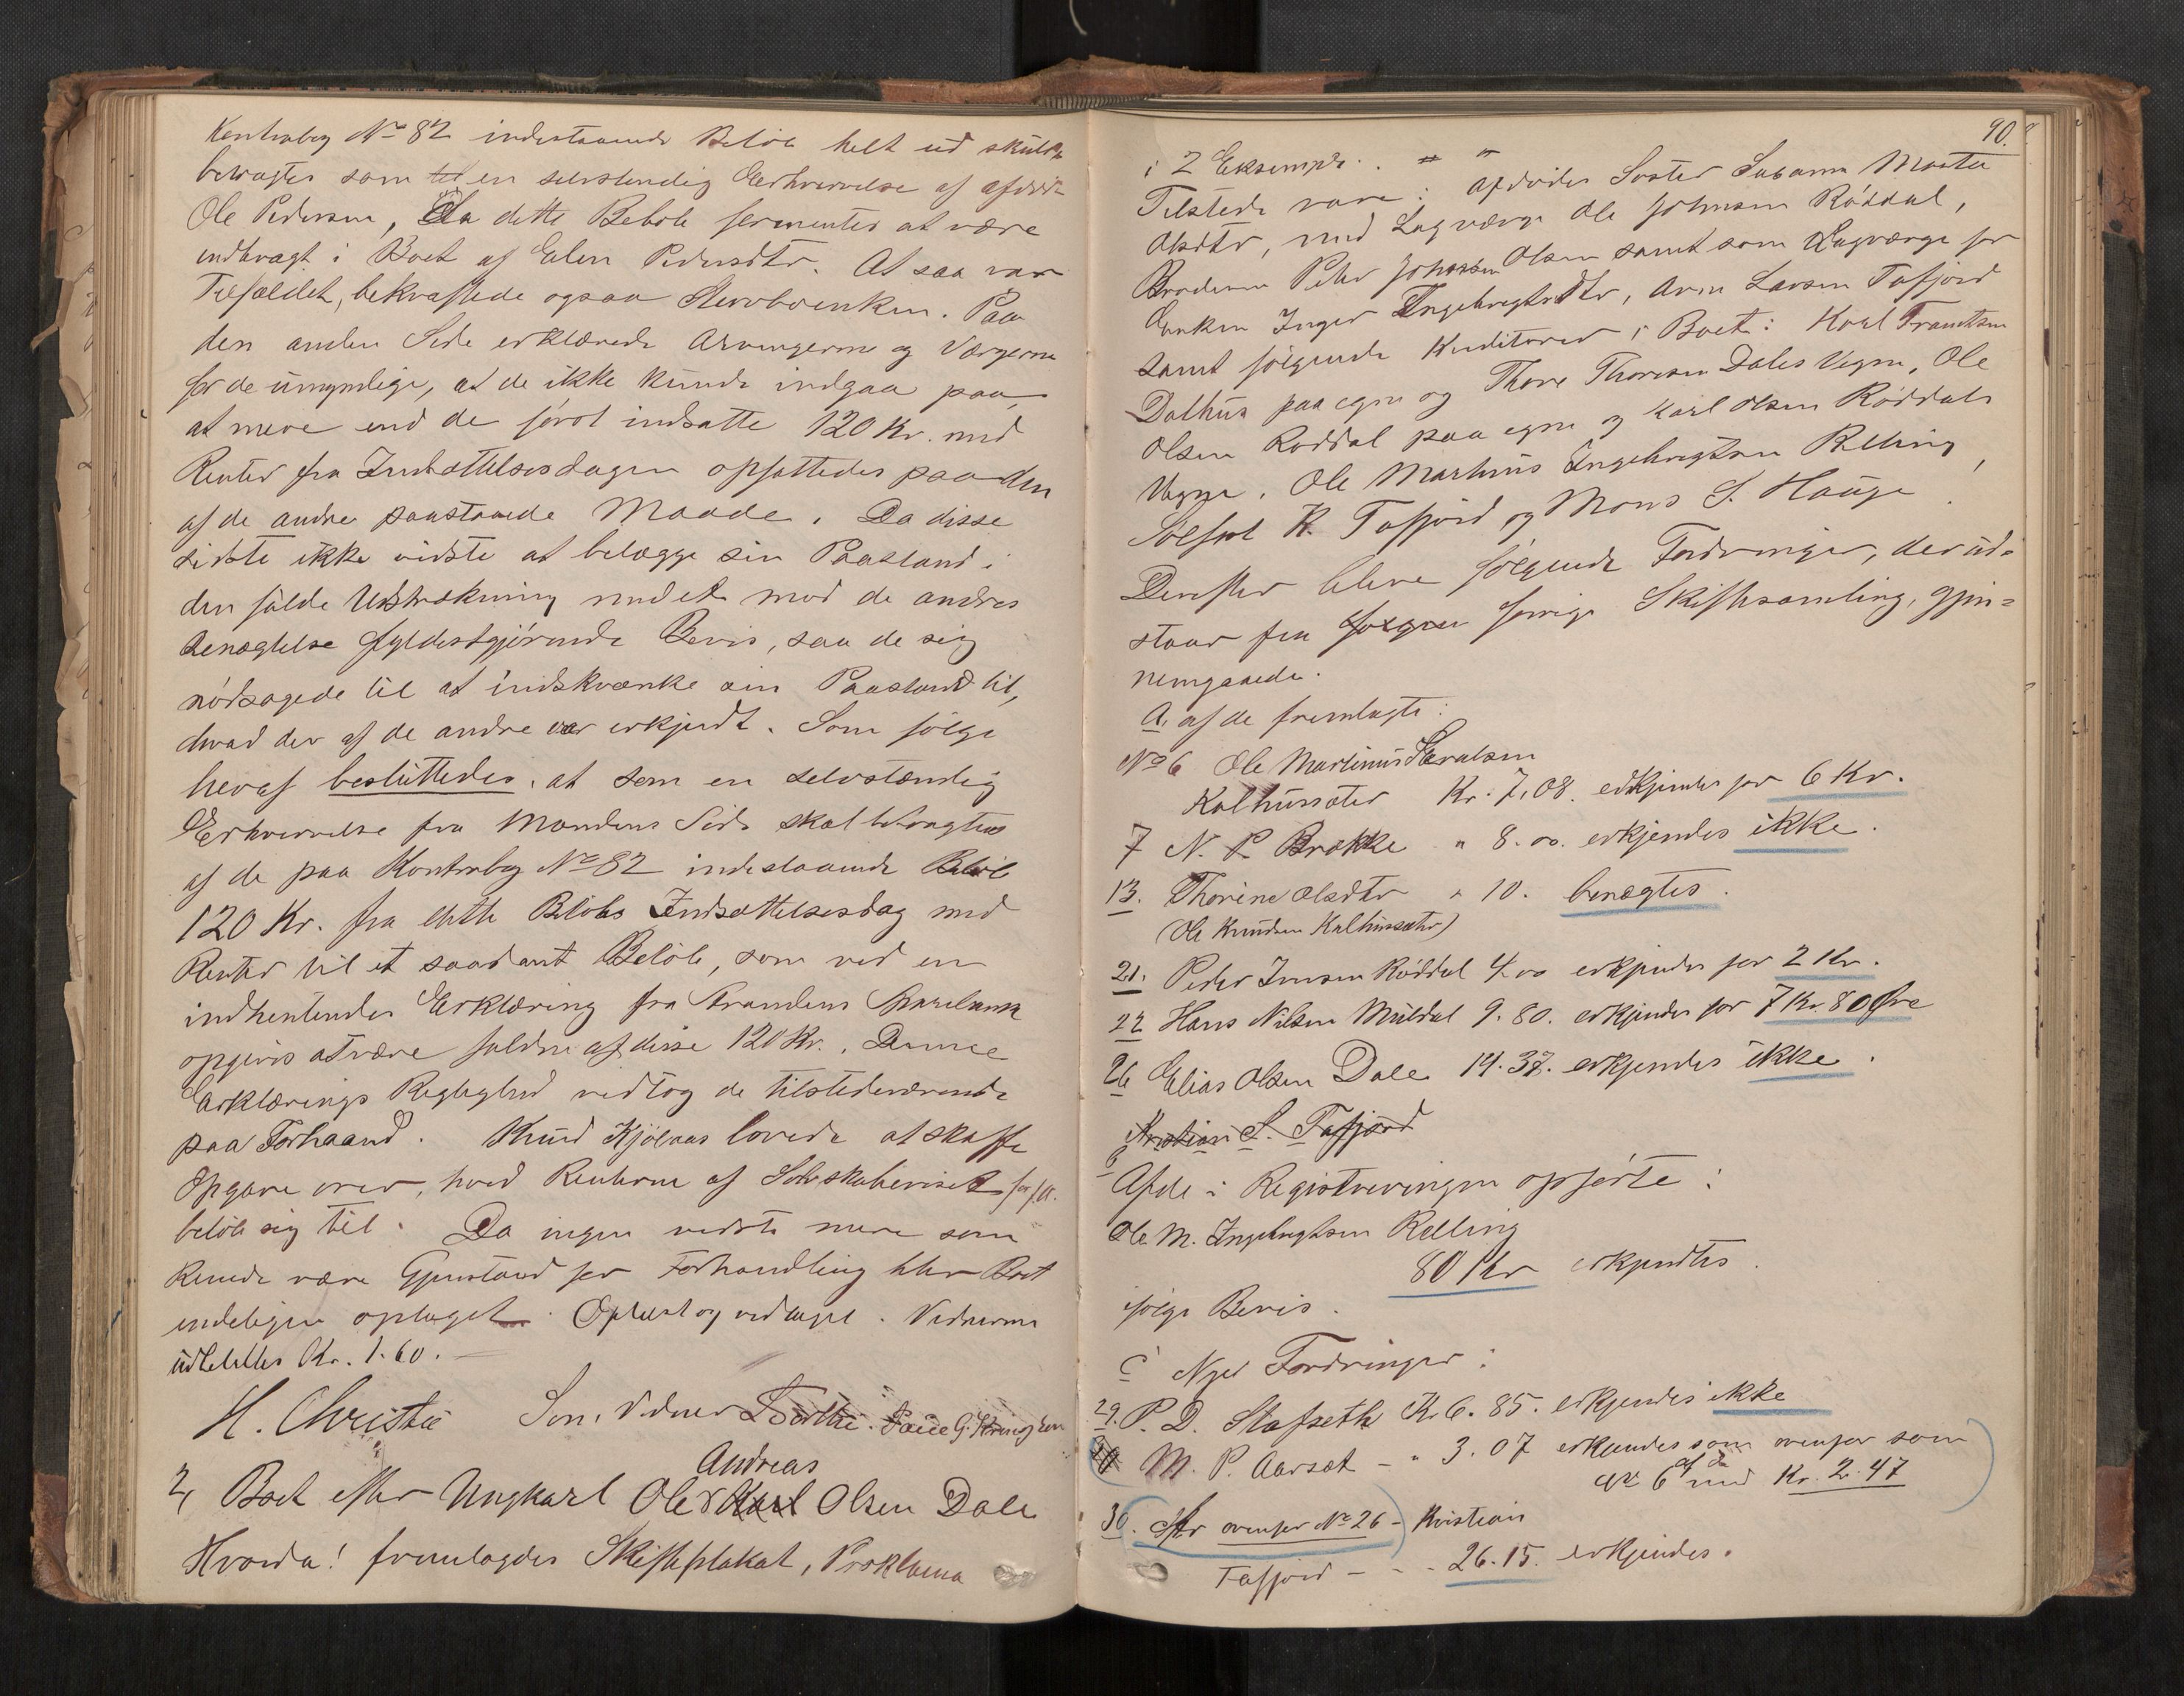 Kontrabog No 82 indestaaende Beløb helt ud skulde
betragtes som en selvstendig Erhvervelse af afdøde
Ole Pedersen, da dette Beløb formentes at være
indbragt i Boet af Elen Pedersdtr. At saa var
Tilfældet, bekræftede ogsaa Stervboenken. Paa
den anden Side erklærede Arvingerne og Værgerne
for de umyndige, at de ikke kunde indgaa paa,
at mere end de først indsatte 120 Kr. med
Renter fra Indsættelsesdagen opfattedes paa den
af de andre paastaaede Maade. Da disse
sidste ikke vidste at belægge sin Paastand i
den fulde Udstrækning med et mod de andres
Benægtelse fyldestgjørende Bevis, saa de sig
nødsagede til at indskrænke sin Paastand til,
hvad der af de andre var erkjendt. Som følge
heraf besluttedes, at som en selvstændig
Erhvervelse fra Mandens Side skal betragtes
af de paa Kontrabog No 82 indestaaende Beløb
120 Kr. fra dette Beløbs Indsættelsesdag med
Renter til et saadant Beløb, som ved en
indhentendes Erklæring fra Strandens Sparebank
opgives at være faldne af disse 120 Kr. Denne
Erklærings Rigtighed vedtog de tilstedeværende
paa Forhaand. Knud Kjølaas lovede at skaffe
Opgave over, hvad Renterne af
beløb sig til. Da ingen vidste mere som
kunde være Gjenstand for Forhandling blev Boet
endeligen optaget. Oplæst og vedtaget. Vidnerne
udbetaltes Kr. 1.60.
H. Christie Som Vidner
Andreas
2, Boet efter Ungkarl Ole Karl Olsen Dale
Hvorda! fremlagdes Skifteplakat, Proklama
90.
i 2 Eksempl.
Tilstede vare: afdødes Søster Susanna Marta
Olsdtr, med Lagværge Ole Johnsen Røddal,
Broderen Peter Johnsen Olsen samt som Lagværge for
Enken Inger Ingebregtsdtr, Arne Larsen Tafjord
samt følgende Kreditorer i Boet: Karl Frantsen
Dalhus paa egne og Thore Thoresen Dales Vegne, Ole
Olsen Røddal paa egne og Karl Olsen Røddals
Vegne, Ole Martinus Ingebregtsen Relling,
K. Tafjord og Mons S. Hauge.
Derefter bleve følgende Fordringer, der ud-
staar fra forrige Skiftesamling, gjen=
nemgaaede.
A, af de fremlagte:
No 6 Ole Martinus
Kalhussæter Kr. 7.08. erkjendes for 6 Kr.
7 N. P. Brække " 8.00. erkjendes ikke.
13. Thorine Olsdtr " 10. benægtes.
(Ole Knudsen Kalhussæter)
21. Peder Jensen Røddal 4.00 erkjendes for 2 Kr.
22 Hans Nilsen Muldal 9.80. erkjendes for 7 Kr. 80 Øre
26 Elias Olsen Dale 14.37. erkjendes ikke.
Kristian S. Tafjord
B
Af de i Registreringen opførte:
Ole M. Ingebregtsen Relling
80 Kr erkjendtes
ifølge Bevis.
C Nye Fordringer:
29. P. D. Stafseth Kr 6.85. erkjendes ikke
30 M. P. Aarsæt - " 3.07 erkjendes som ovenfor som
No 6 med Kr. 2.47
30. Se ovenfor No 26 - Kristian
Tafjord - - - 26.15. erkjendes.